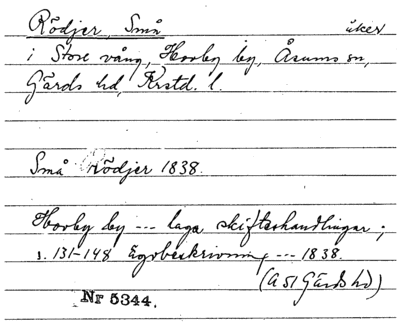 Rödjer, Små åker
i Store vång, Hovby by, Åsums sn,
Gärds hd, Krstd. l.
Små Rödjer 1838.
Hovby by --- laga skifteshandlingar;
s. 131-148 Egobeskrivning --- 1838.
(A 51 Gärds hd)
Nr 5344.